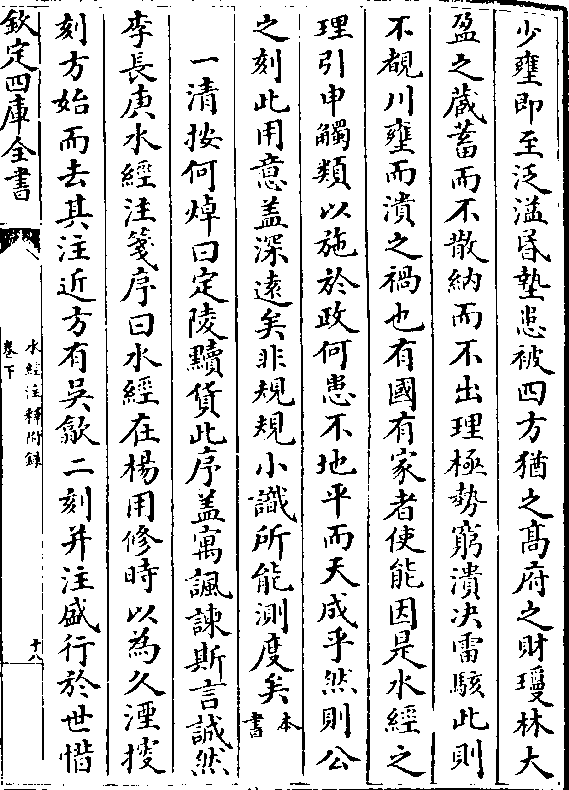 少壅即至泛溢昬墊患被四方猶之髙府之財瓊林大
盈之蔵蓄而不散納而不出理極勢窮潰决雷駭此則
不覩川壅而潰之禍也有國有家者使能因是水經之
理引申觸類以施於政何患不地平而天成乎然則公
之刻此用意盖深逺矣非規規小識所能測度矣本書
一清按何焯曰定陵黷貨此序盖寓諷諫斯言誠然
李長庚水經注箋序曰水經在楊用修時以為久湮㨗
刻方始而去其注近方有吳歙二刻并注盛行於世惜
欽定四庫全書
水經注釋附錄
卷下
十八